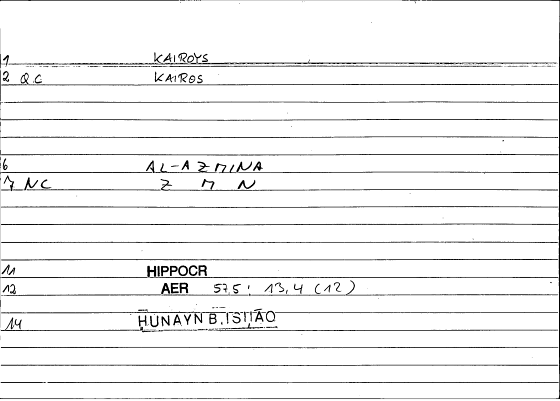 1 KAIROYS
2 Q.C KAIROS
6 AL-AZMINA
7 NC Z M N
11 HIPPOCR
12 AER 57,5; 13,4 (12)
14 HUNAYN B. ISḤĀQ